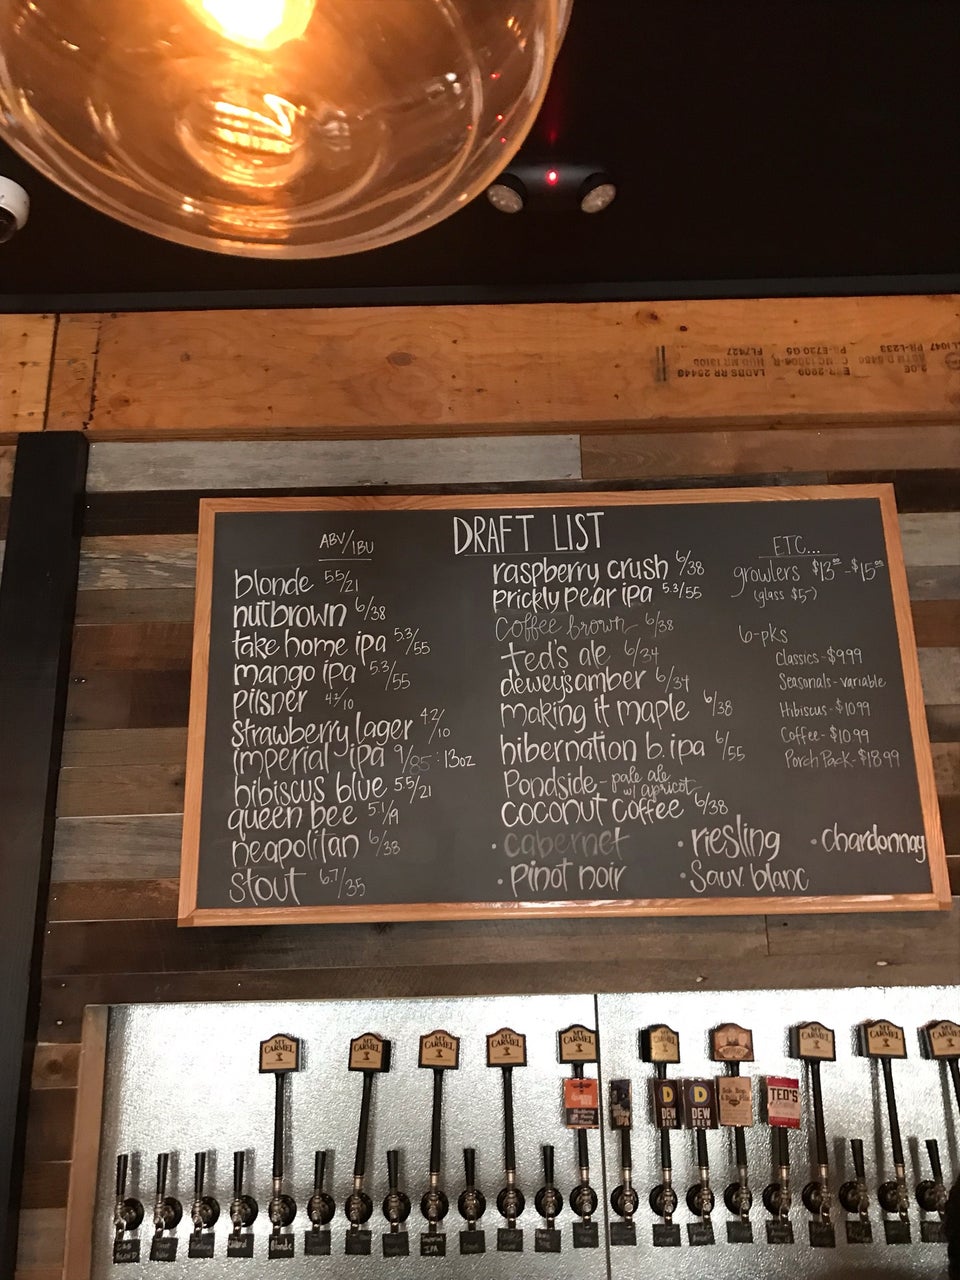 DRAFT LIST
ABV/IBU
blonde 5.5/21
nutbrown 6/38
take home ipa 5.3/55
mango ipa 5.3/55
pilsner 4.2/10
strawberry lager 4.2/10
imperial ipa 9/85 : 13oz
hibiscus blue 5.5/21
queen bee 5.1/19
neapolitan 6/38
stout 6.7/35
raspberry crush 6/38
prickly pear ipa 5.3/55
coffee brown 6/38
ted's ale 6/34
deweys amber 6/34
making it maple 6/38
hibernation b. ipa 6/55
Pondside - pale ale
w/ apricot
coconut coffee 6/38
• cabernet • riesling • chardonnay
• pinot noir • Sauv. blanc
ETC...
growlers $13.00 - $15.00
(glass $5-)
6-pks
Classics - $9.99
Seasonals - variable
Hibiscus - $10.99
Coffee - $10.99
Porch Pack - $18.99
MT. CARMEL
MT. CARMEL
MT. CARMEL
MT. CARMEL
MT. CARMEL
CARMEL
MT. CARMEL
MT. CARMEL
CARMEL
D
DEW
D
DEW
TED'S
Blonde
Imperial
IPA